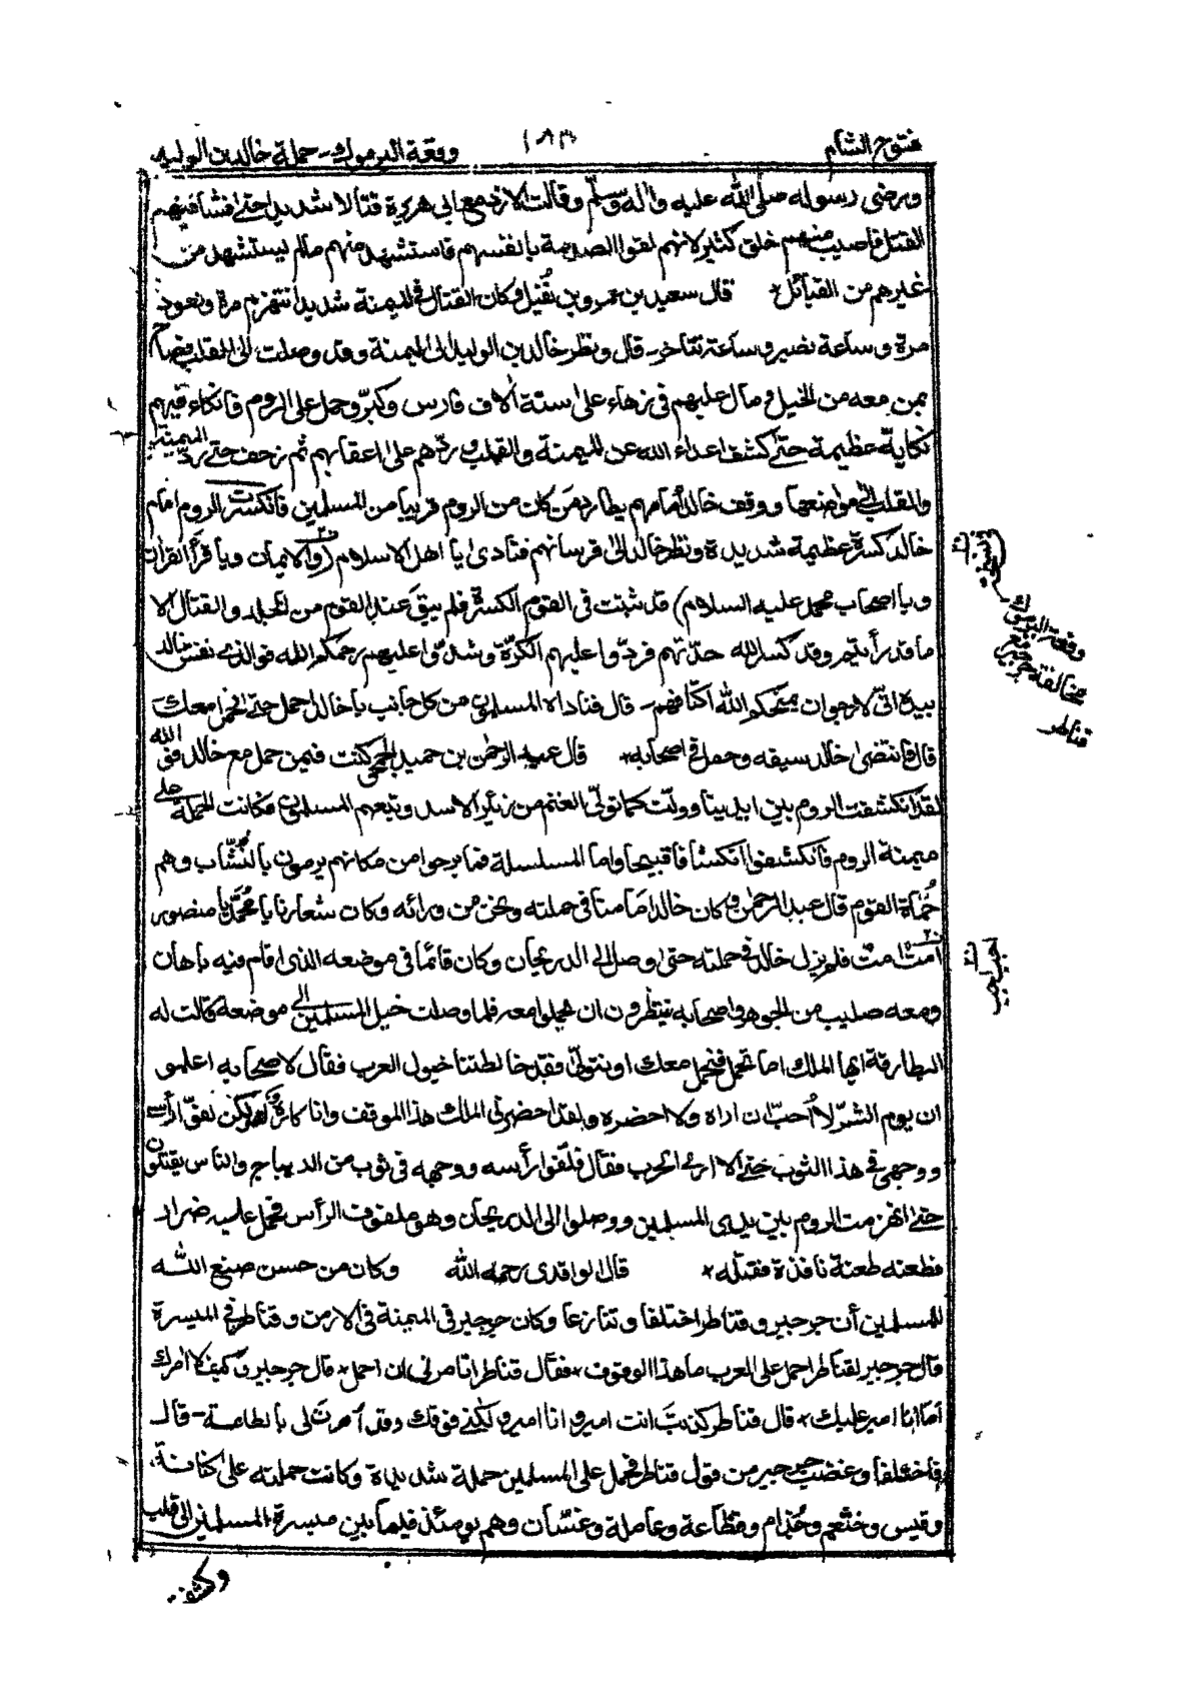 فتوح الشام
١٨٣
وقعة اليرموك - حملة خالد بن الوليد
ويرضى رسوله صلى الله عليه واله وسلّم وقالت الازد مع ابى هريرة قتالا شديدا حتى فشا فيهم
القتل فاصيب منهم خلق كثير لانهم لقوا الصدمة بانفسهم فاستشهد منهم مالم يستشهد من
غيرهم من القبائل * قال سعيد بن عمرو بن نُفَيل وكان القتال فى الميمنة شديدا تنهزم مرة ونعود
مرة وساعة نصير وساعة نتاخر - قال ونظر خالد بن الوليد الى الميمنة وقد وصلت الى القلب فصاح
بمن معه من الخيل ومال عليهم فى زهاء على ستة الاف فارس وكبّر وحمل على الروم فانكاء فيهم
نكاية عظيمة حتى كشف اعداء الله عن الميمنة والقلب وردّهم على اعقابهم ثم زحف حتى ردّ الميمنة
والقلب الى مواضعها ووقف خالد أمامهم يطارد مَن كان من الروم قريبا من المسلمين فانكسرت الروم امام
خالد كسرة عظيمة شديدة ونظر خالد الى فرسانهم فنادى يا اهل الاسلام (والايمان ويا قرأ القران
ويا اصحاب محمد عليه السلام) قد ثبتت فى القوم الكسرة فلم يبق عند القوم من الجلد والقتال الا
ما قد رأيتم وقد كسر الله حدّتهم فردّوا عليهم الكرّة وشدّوا عليهم رحمكم الله فوالذى نفس خالد
بيده انّى لارجوان يمنحكم الله اكتافهم - قال فناداه المسلمون من كل جانب يا خالد احمل حتى نحمل معك
قال فانتضى خالد سيفه وحمل فى اصحابه * قال عبد الرحمن بن حميد الجمحى كنت فيمن حمل مع خالد فوالله
لقد انكشفت الروم بين ايدينا وولّت كما تولّى الغنم من زئير الاسد وتبعهم المسلمون فكانت الحملة على
ميمنة الروم فانكشفوا انكشافا قبيحا واما المسلسلة فما برحوا من مكانهم يرمون بالنُشّاب وهم
حُماة القوم قال عبد الرحمن وكان خالد امامنا فى حملته ونحن من ورائه وكان شعارنا يا محمّد يا منصور
امت امت فلم يزل خالد فى حملته حتى وصل الى الدريجان وكان قائما فى موضعه الذى اقام فيه باهان
ومعه صليب من الجوهر واصحابه ينتظرون ان يحملوا معه فلما وصلت خيل المسلمين الى موضعه قالت له
البطارقة ايها الملك اما تحمل فنحمل معك او نتولّى فقد خالطتنا خيول العرب فقال لاصحابه اعلموا
ان يوم الشرّ لا أحبّ ان اراه ولا احضره ولقد احضرنى الملك هذا الموقف وانا كاره له ولكن لفّوا رأسى
ووجهى فى هذا الثوب حتى الا ارى الحرب فقال فلفّوا رأسه ووجهه فى ثوب من الديباج والناس يقتتلون
حتى انهزمت الروم بين يدى المسلمين ووصلوا الى الدريجان وهو ملفوف الرأس فحمل عليه ضرار
فطعنه طعنة نافذة فقتله * قال الواقدى رحمه الله وكان من حسن صنيع الله
للمسلمين أن جرجير وقناطر اختلفا وتنازعا وكان جرجير فى الميمنة فى الارمن وقناطر فى الميسرة
قال جرجير لقناطر احمل على العرب ما هذا الوقوف * فقال قناطر اتامرنى ان احمل * قال جرجير وكيف لا امرك
اما انا امير عليك * قال قناطر كذبت انت امير وانا امير ولكنى فوقك وقد أمرت لى بالطاعة - قال
فاختلفا وغضب جرجير من قول قناطر فحمل على المسلمين حملة شديدة وكانت حملته على كنانة
وقيس وخثعم وجُذام وقضاعة وعاملة وغسّان وهم يومئذ فيما بين ميسرة المسلمين الى قلب
وكشف
وقعة اليرموك
مخالفة جرجير مع
قناطر